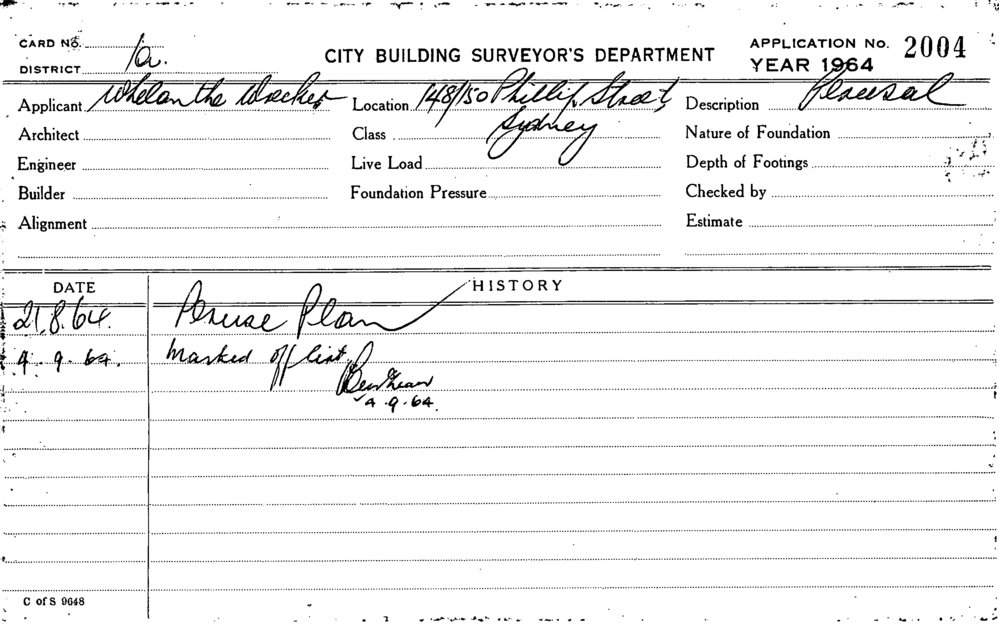 CARD No.
CITY BUILDING SURVEYOR'S DEPARTMENT
APPLICATION No. 2004
DISTRICT 1a.
YEAR 1964
Applicant Whelan the Wrecker Location 148/150 Phillip Street, Description Perusal
Sydney
Architect Class Nature of Foundation
Engineer Live Load Depth of Footings
Builder Foundation Pressure Checked by
Alignment Estimate
DATE HISTORY
21.8.64. Peruse Plan
4.9.64. Marked off list.
4.9.64.
C of S 9648